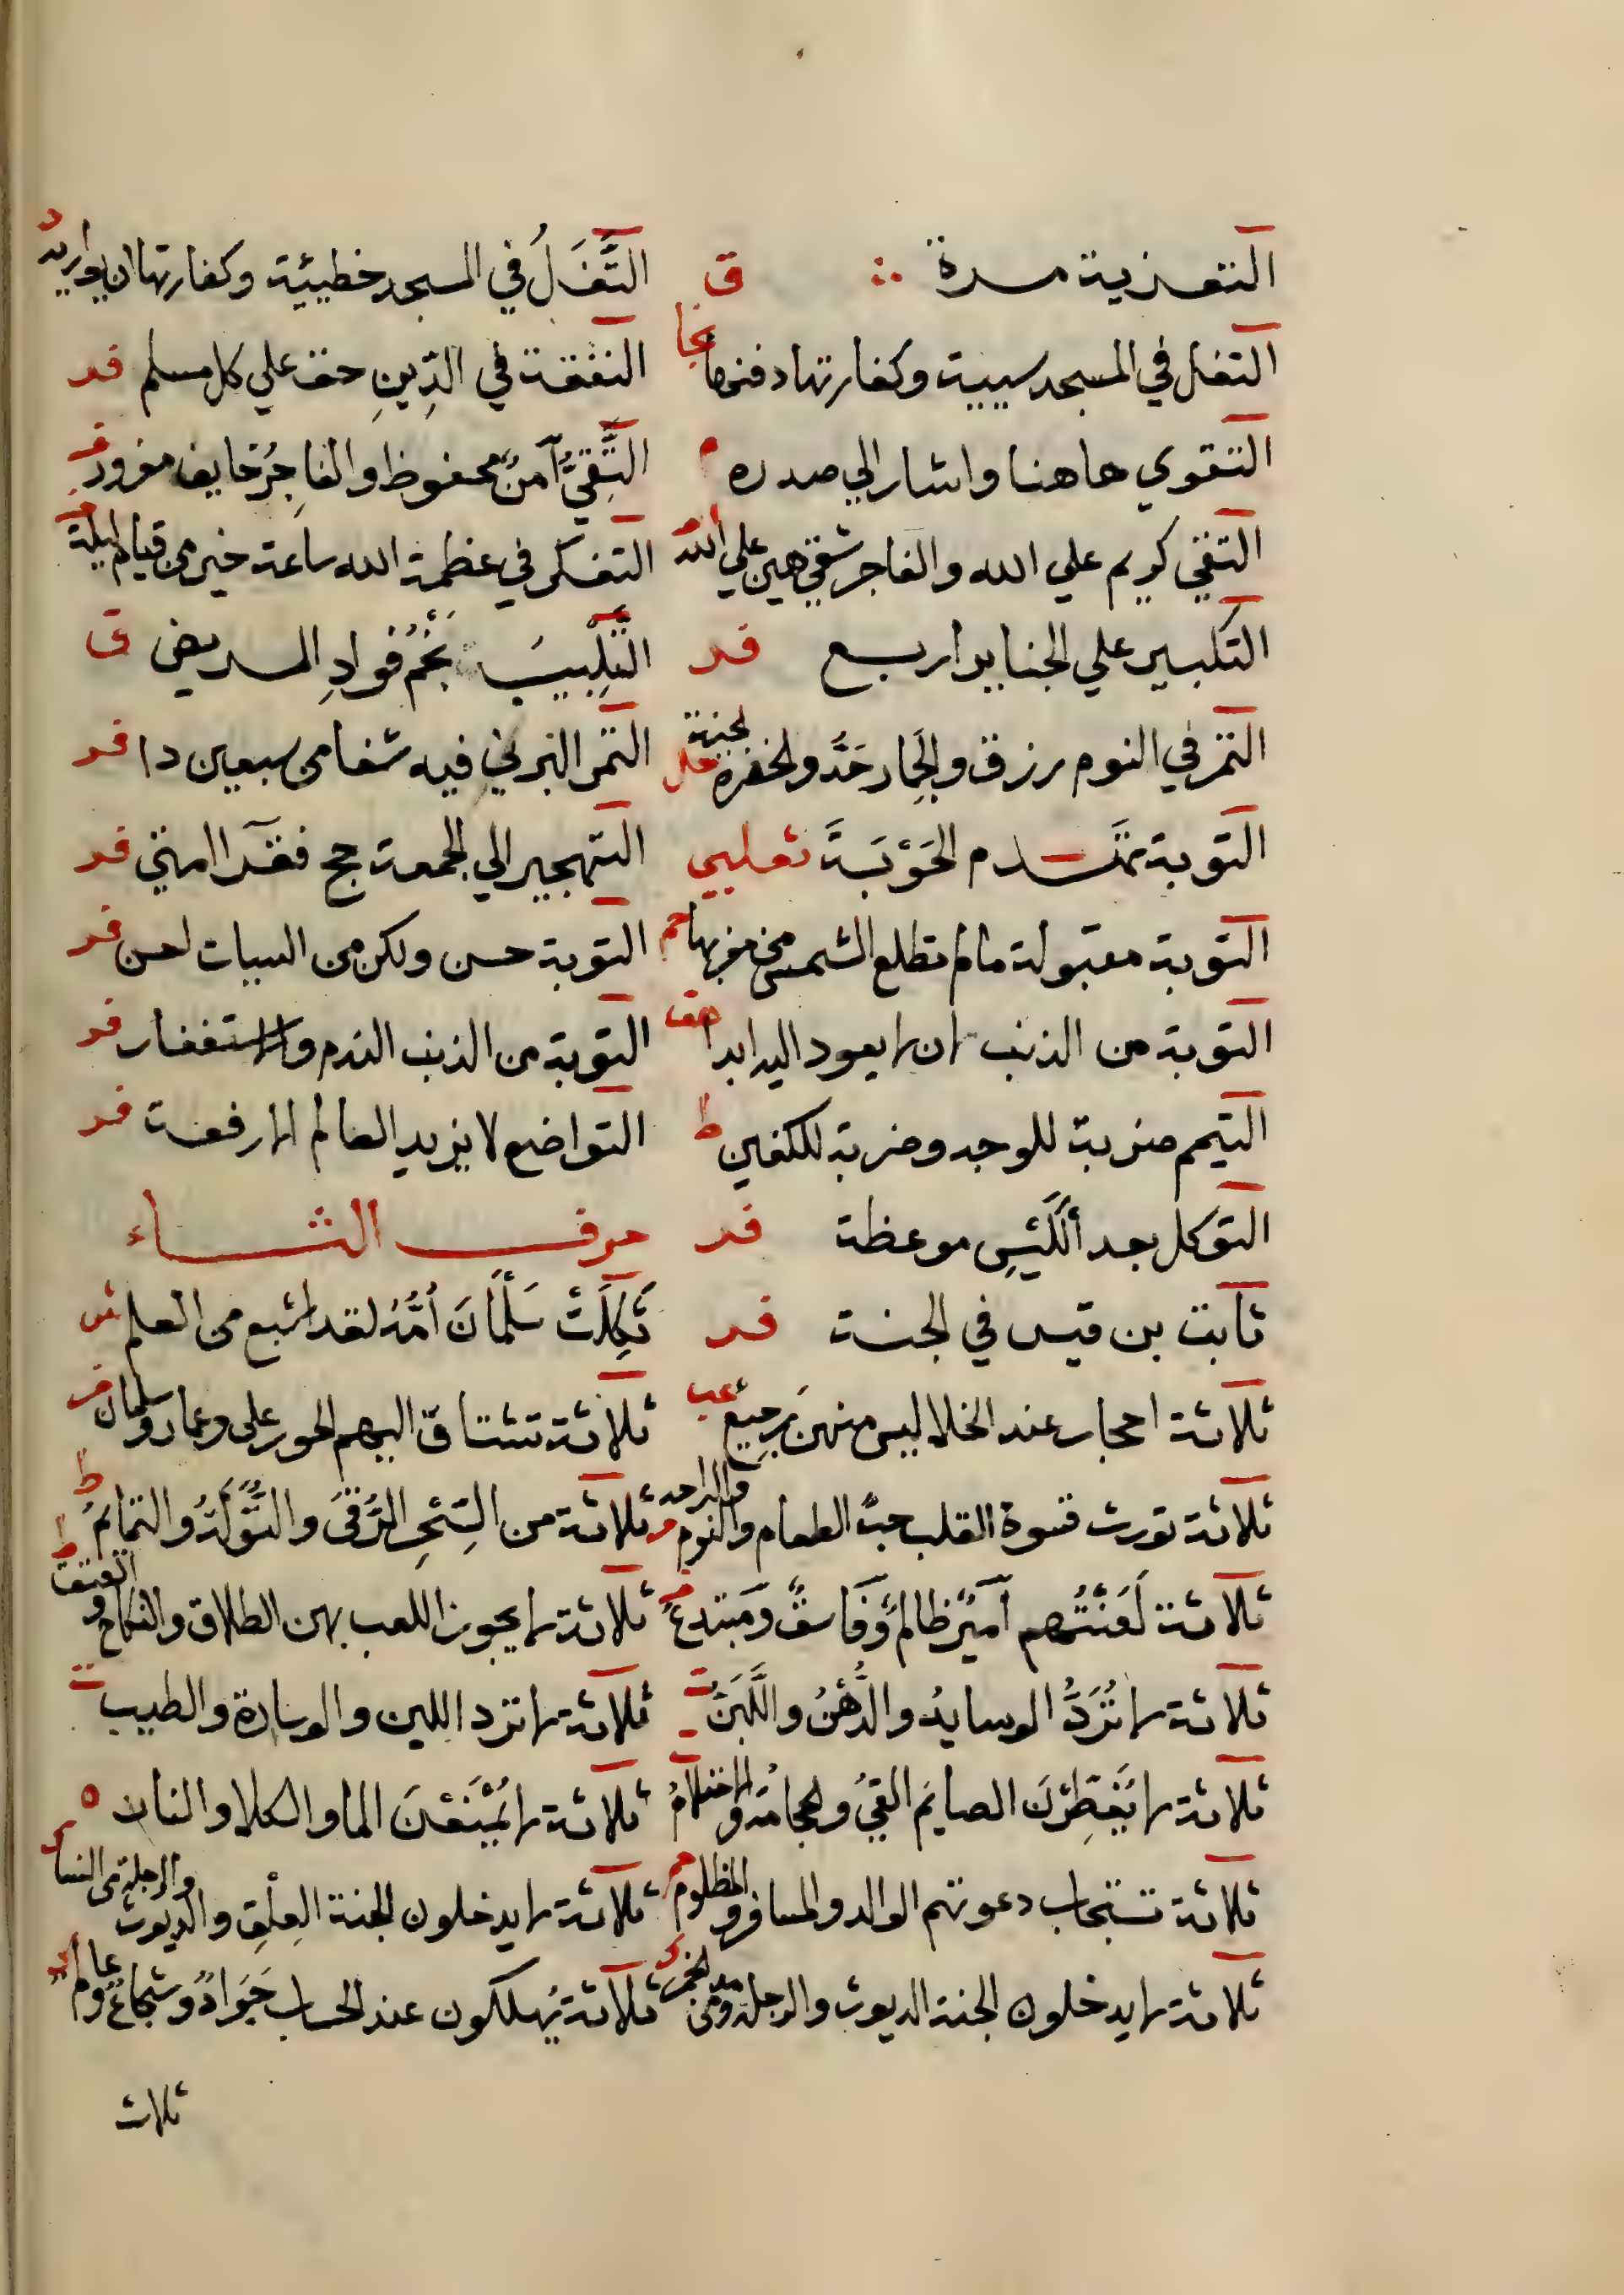 التعزية مرة ق
التَّفَلُ في المسجد خطيئية وكفارتها ان يواريه د
التفل في المسجد سيية وكفارتها دفنها
التفقة في الدِّينِ حق علي كل مسلم فر
التقوي هاهنا واشار الي صدره م
التَّقِيُّ آمنٌ محفوظ او الفاجِرُ خايف مغرور فر
التقي كريم علي الله والفاجر شقي هين علي الله
التفكر في عظمة الله ساعة خير من قيام ليلة
التكبير علي الجنايز اربع فر
التَّلْبِيبَ تَجُمُّ فُوادِ المريض ق
التمر في النوم رزق والحِمار حَدٌّ والخضرة لجنة
التمر البرني فيه شفا من سبعين دا فر
التوبة تَهْدم الحَوْبَةَ ثعلبي
التهجير الي الجمعة حج فقرا امتي فر
التوبة مقبولة مالم تطلع الشمس من مغربها حم
التوبة حسن ولكن من السبات احسن فر
التوبة من الذنب ان لا يعود اليه ابدا هق
التوبة من الذنب الندم والاستغفار فر
التيمم ضربة للوجه وضربة للكفين ط
التواضع لا يزيد العالم الا رفعة فر
التوكل بعد ألكَيْسِ موعظة فر
حرف الثاء
ثابت بن قيس في الجنة فر
ثَكِلَتْ سَلْمَانَ اُمُّهُ لقد اشبع من العلم ش
ثلاثة احجار عند الخلا ليس منهن رَجِيع
ثلاثة تشتاق اليهم الحور علي وعمار وسلمان
ثلاثة تورث قسوة القلب حبُّ الطعام والنوم والراحه
ثلاثة من السِّحْرِ الرُّقَى والتِّوَلَةُ والتمايمُ ط
ثلاثة لَعَنْتُهم آميرٌ ظالمٌ وَفَاسقٌ ومَبتدعٌ
ثلاثة لا يجوز اللعب بهن الطلاق والنكاح والعتق ط
ثلاثة لا تُرَدُّ الوسايدُ والدُّهْنُ واللَّبَنُ ت
ثلاثة لا ترد اللبن والوسادة والطيب ت
ثلاثة لا يُفَطِّرْنَ الصايمَ القيُ والحجامةُ والاحتلامُ
ثلاثة لا يُمْنَعْنَ الما والكلا والنار ه
ثلاثة تستجاب دعوتهم الوالد والمسافر والمظلوم حم
ثلاثة لا يدخلون الجنة العِلْق والديوث والرجلة من النسا
ثلاثة لا يدخلون الجنة الديوث والرجلة ومدمن الخمر
ثلاثة يُهلكون عند الحساب جَوَادٌ وشجاعٌ وعالم
ثلاث